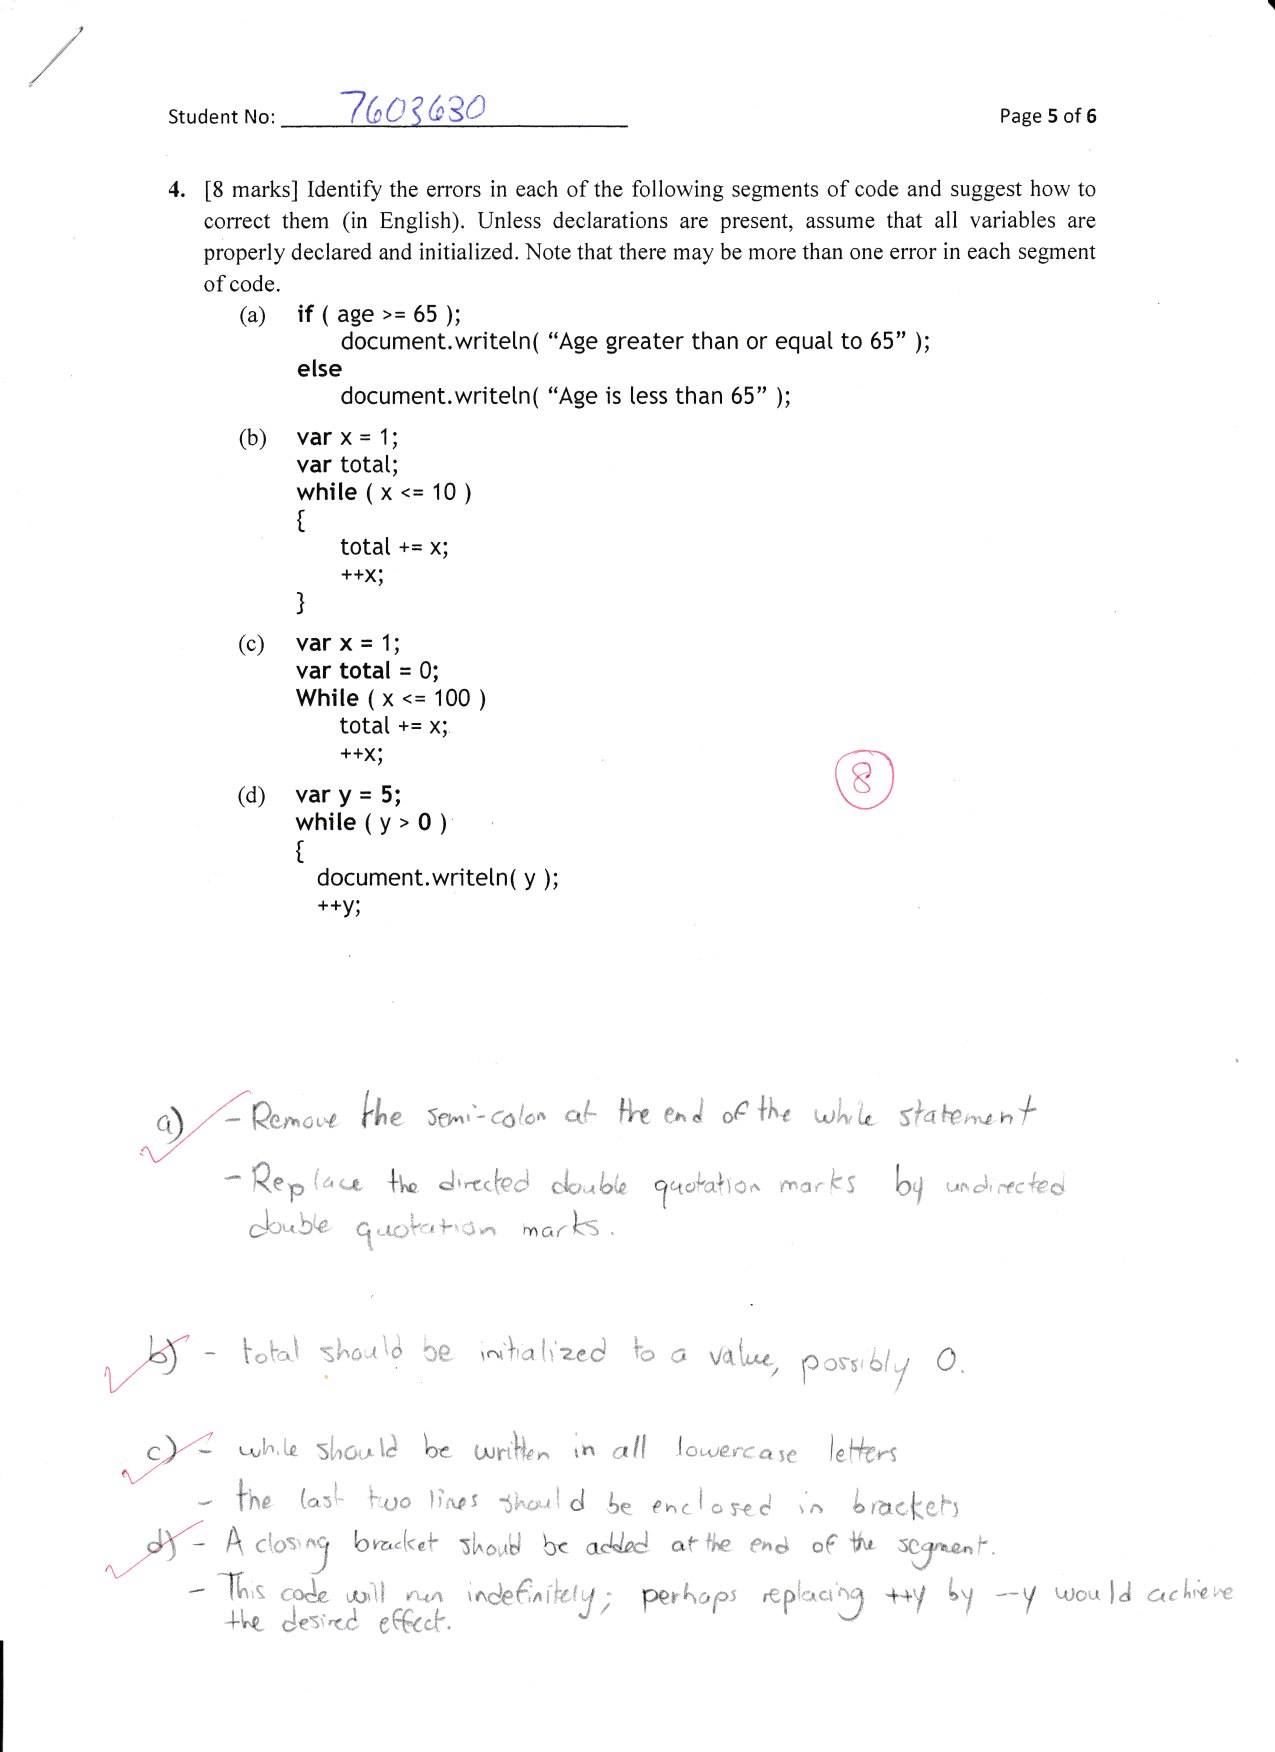 Student No: 7603630
Page 5 of 6
4. [8 marks] Identify the errors in each of the following segments of code and suggest how to
correct them (in English). Unless declarations are present, assume that all variables are
properly declared and initialized. Note that there may be more than one error in each segment
of code.
(a) if ( age >= 65 );
document.writeln( “Age greater than or equal to 65” );
else
document.writeln( “Age is less than 65” );
(b) var x = 1;
var total;
while ( x <= 10 )
{
total += x;
++x;
}
(c) var x = 1;
var total = 0;
While ( x <= 100 )
total += x;
++x;
8
(d) var y = 5;
while ( y > 0 )
{
document.writeln( y );
++y;
a) - Remove the semi-colon at the end of the while statement
2
- Replace the directed double quotation marks by undirected
double quotation marks.
b) - total should be initialized to a value, possibly 0.
2
c) - while should be written in all lowercase letters
2
- the last two lines should be enclosed in brackets
d) - A closing bracket should be added at the end of the segment.
2
- This code will run indefinitely; perhaps replacing ++y by --y would achieve
the desired effect.